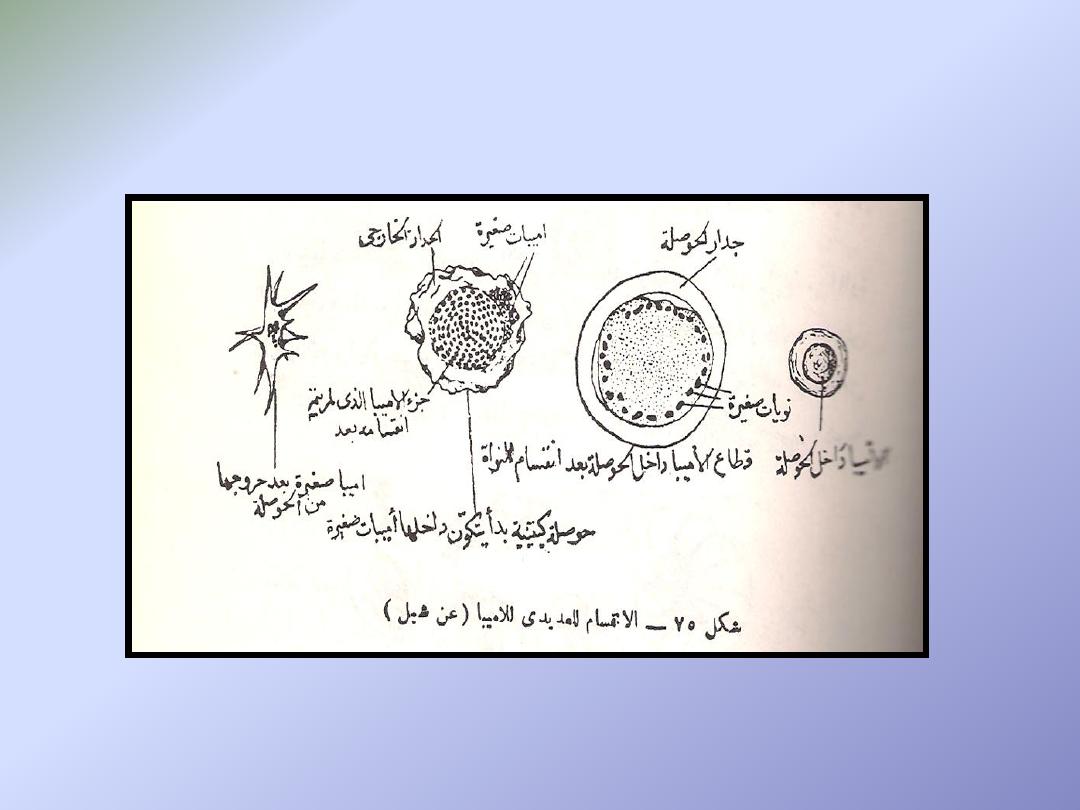 جدار الحوصلة
اميبات صغيرة
الجدار الخارجى
نويات صغيرة
جزء الاميبا الذى لم يتم
انقسامه بعد
الأميبا داخل الحوصلة
قطاع الأميبا داخل الحوصلة بعد انقسام النواة
اميبا صغيرة بعد خروجها
من الحوصلة
حوصلة كيتينية بدأ يتكون داخلها أميبات صغيرة
شكل ٧٥ — الانقسام العديدى للاميبا (عن شبل)